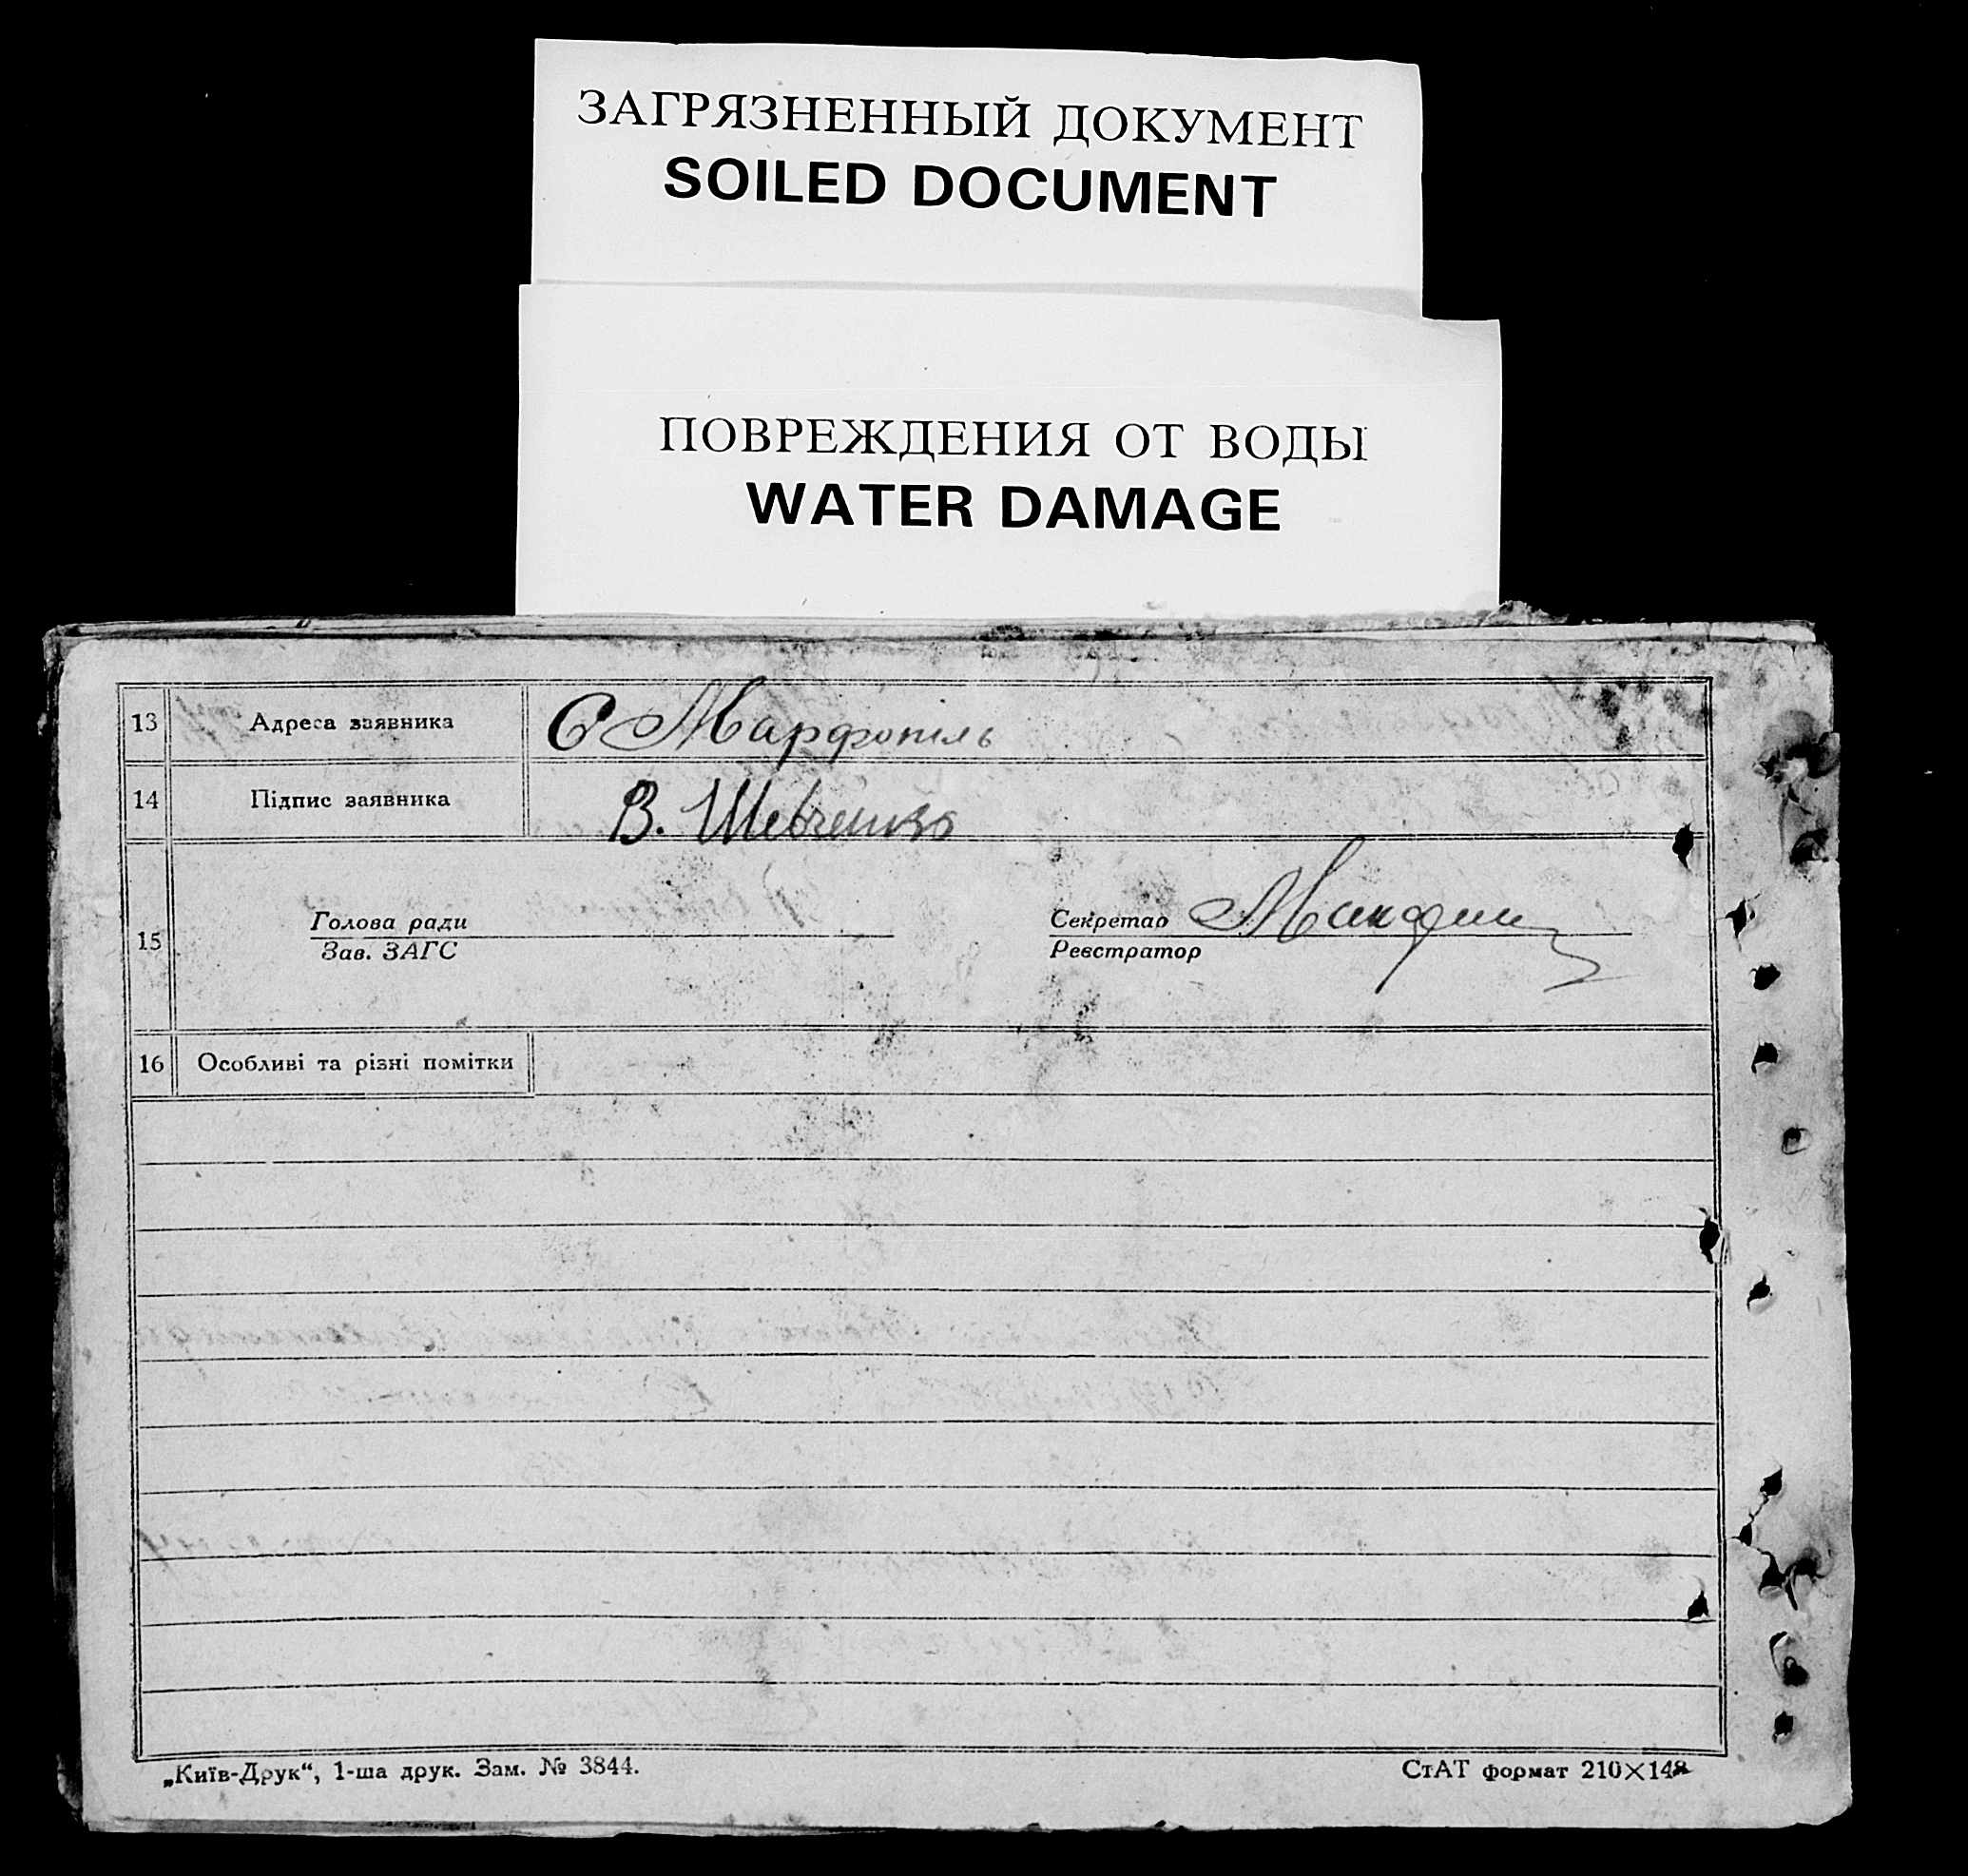 ЗАГРЯЗНЕННЫЙ ДОКУМЕНТ
SOILED DOCUMENT
ПОВРЕЖДЕНИЯ ОТ ВОДЫ
WATER DAMAGE
13 Адреса заявника С Марфопіль
14 Підпис заявника В. Шевченко
15
Голова ради
Зав. ЗАГС
Секретар
Реєстратор
16 Особливі та різні помітки
„Київ-Друк“, 1-ша друк. Зам. № 3844.
СтАТ формат 210×148